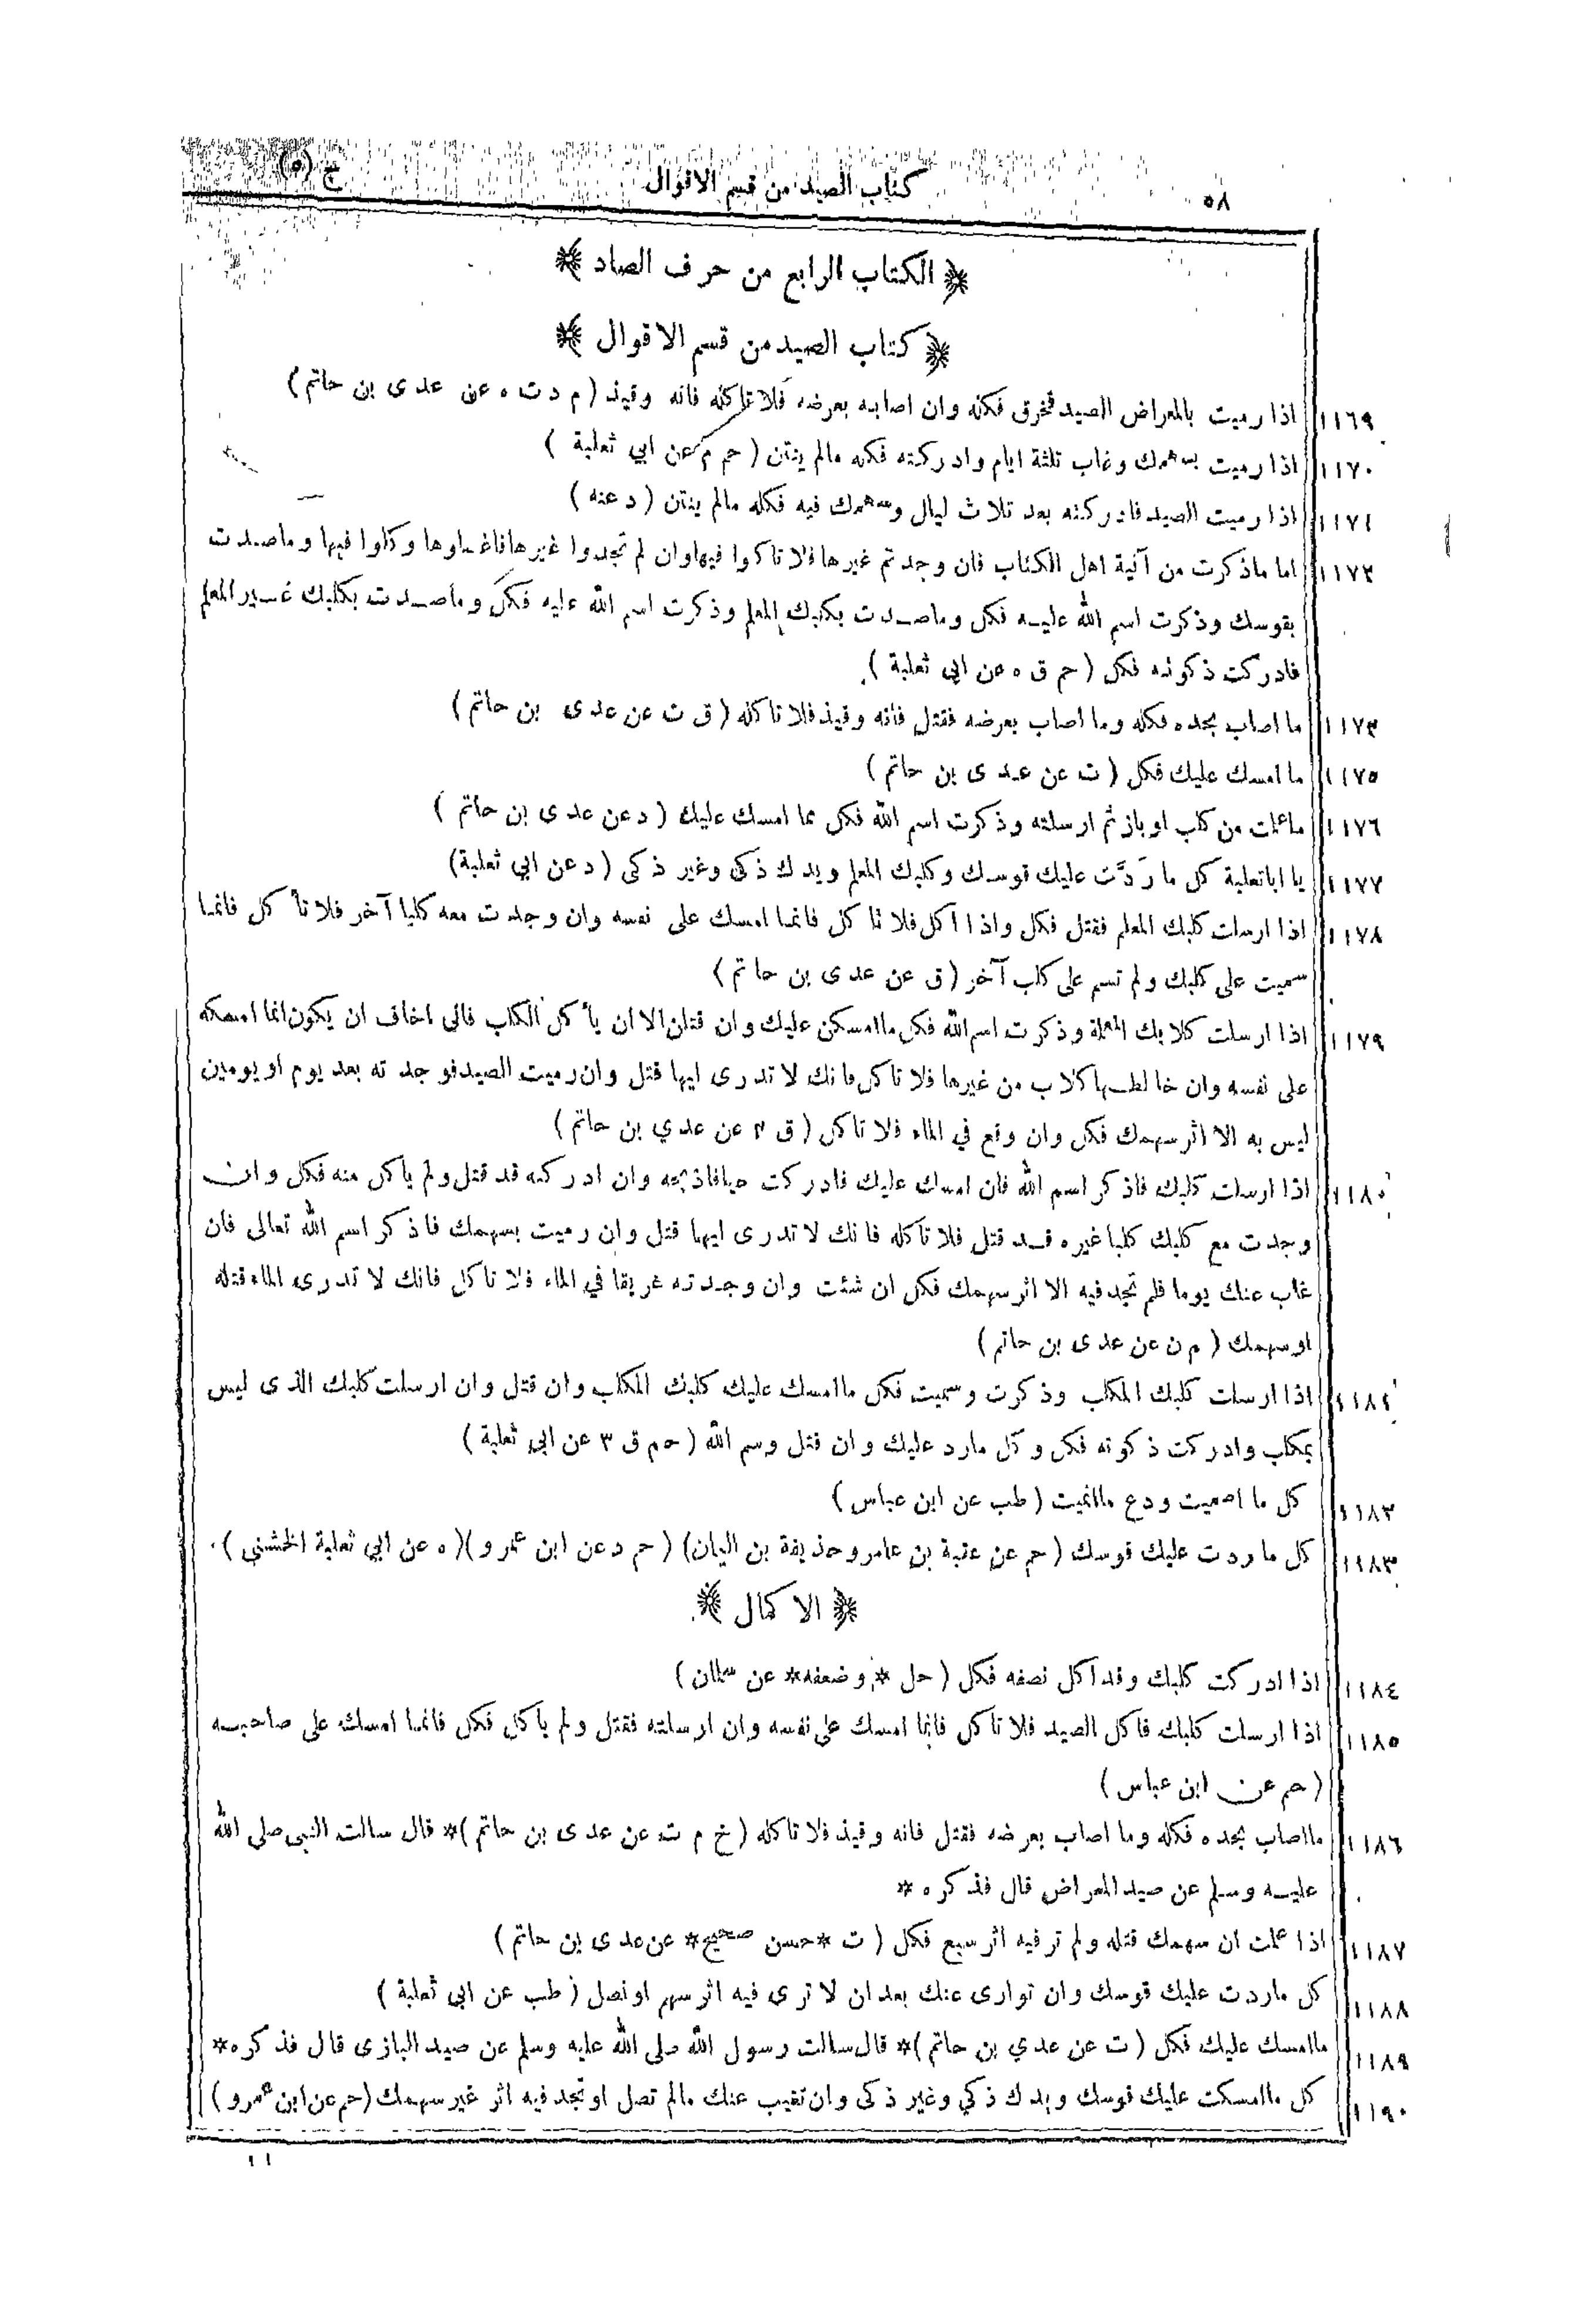 ٥٨ كتاب الصيد من قسم الاقوال ج (٥)
﴿ الكتاب الرابع من حرف الصاد ﴾
﴿ كتاب الصيد من قسم الاقوال ﴾
١١٦٩ اذا رميت بالمعراض الصيد فخرق فكله وان اصابه بعرضه فلا تاكله فانه وقيذ ( م د ت ه عن عدى بن حاتم )
١١٧٠ اذا رميت بسهمك وغاب ثلثة ايام وادركته فكله مالم ينتن ( حم م عن ابي ثعلبة )
١١٧١ اذا رميت الصيد فادركته بعد ثلاث ليال وسهمك فيه فكله مالم ينتن ( د عنه )
١١٧٢ اما ماذكرت من آنية اهل الكتاب فان وجدتم غيرها فلا تاكلوا فيها وان لم تجدوا غيرها فاغسلوها وكلوا فيها وماصدت
بقوسك وذكرت اسم الله عليه فكل وماصدت بكلبك المعلم وذكرت اسم الله عليه فكل وماصدت بكلبك غير المعلم
فادركت ذكوته فكل ( حم ق ه عن ابي ثعلبة )
١١٧٣ ما اصاب بحده فكله وما اصاب بعرضه فقتل فانه وقيذ فلا تاكله ( ق ت عن عدى بن حاتم )
١١٧٥ ما امسك عليك فكل ( ت عن عدى بن حاتم )
١١٧٦ ماعلمت من كلب او باز ثم ارسلته وذكرت اسم الله فكل مما امسك عليك ( د عن عدى بن حاتم )
١١٧٧ يا اباثعلبة كل ما ردّت عليك قوسك وكلبك المعلم ويدك ذكى وغير ذكى ( د عن ابي ثعلبة )
١١٧٨ اذا ارسلت كلبك المعلم فقتل فكل واذا اكل فلا تاكل فانما امسك على نفسه وان وجدت معه كلبا آخر فلا تأكل فانما
سميت على كلبك ولم تسم على كلب آخر ( ق عن عدى بن حاتم )
١١٧٩ اذا ارسلت كلابك المعلمة وذكرت اسم الله فكل ماامسكن عليك وان قتلن الا ان يأكل الكلب فانى اخاف ان يكون انما امسكه
على نفسه وان خالطها كلاب من غيرها فلا تاكل فانك لا تدرى ايها قتل وان رميت الصيد فوجدته بعد يوم او يومين
ليس به الا اثر سهمك فكل وان وقع في الماء فلا تاكل ( ق ٣ عن عدي بن حاتم )
١١٨٠ اذا ارسلت كلبك فاذكر اسم الله فان امسك عليك فادركت حيا فاذبحه وان ادركته قد قتل ولم ياكل منه فكل وان
وجدت مع كلبك كلبا غيره قد قتل فلا تاكله فانك لا تدرى ايهما قتل وان رميت بسهمك فاذكر اسم الله تعالى فان
غاب عنك يوما فلم تجد فيه الا اثر سهمك فكل ان شئت وان وجدته غريقا في الماء فلا تاكل فانك لا تدرى الماء قتله
او سهمك ( م ن عن عدى بن حاتم )
اذا ارسلت كلبك المكلب وذكرت وسميت فكل ماامسك عليك كلبك المكلب وان قتل وان ارسلت كلبك الذى ليس
بمكلب وادركت ذكوته فكل وكل مارد عليك وان قتل وسم الله ( حم ق ٣ عن ابي ثعلبة )
كل ما اصميت ودع ماانميت ( طب عن ابن عباس )
١١٨٣ كل ما ردت عليك قوسك ( حم عن عقبة بن عامر وحذيفة بن اليمان ) ( حم د عن ابن عمرو ) ( ه عن ابي ثعلبة الخشنى )
﴿ الاكمال ﴾
١١٨٤ اذا ادركت كلبك وقد اكل نصفه فكل ( حل * وضعفه * عن سلمان )
١١٨٥ اذا ارسلت كلبك فاكل الصيد فلا تاكل فانما امسك على نفسه وان ارسلته فقتل ولم ياكل فكل فانما امسك على صاحبه
( حم عن ابن عباس )
١١٨٦ مااصاب بحده فكله وما اصاب بعرضه فقتل فانه وقيذ فلا تاكله ( خ م ت عن عدى بن حاتم ) * قال سالت النبى صلى الله
عليه وسلم عن صيد المعراض قال فذكره *
١١٨٧ اذا علمت ان سهمك قتله ولم تر فيه اثر سبع فكل ( ت * حسن صحيح * عن عدى بن حاتم )
١١٨٨ كل ماردت عليك قوسك وان توارى عنك بعد ان لا ترى فيه اثر سهم او نصل ( طب عن ابى ثعلبة )
١١٨٩ ماامسك عليك فكل ( ت عن عدي بن حاتم ) * قال سالت رسول الله صلى الله عليه وسلم عن صيد البازى قال فذكره *
١١٩٠ كل ماامسكت عليك قوسك ويدك ذكي وغير ذكى وان تغيب عنك مالم تصل او تجد فيه اثر غير سهمك ( حم عن ابن عمرو )